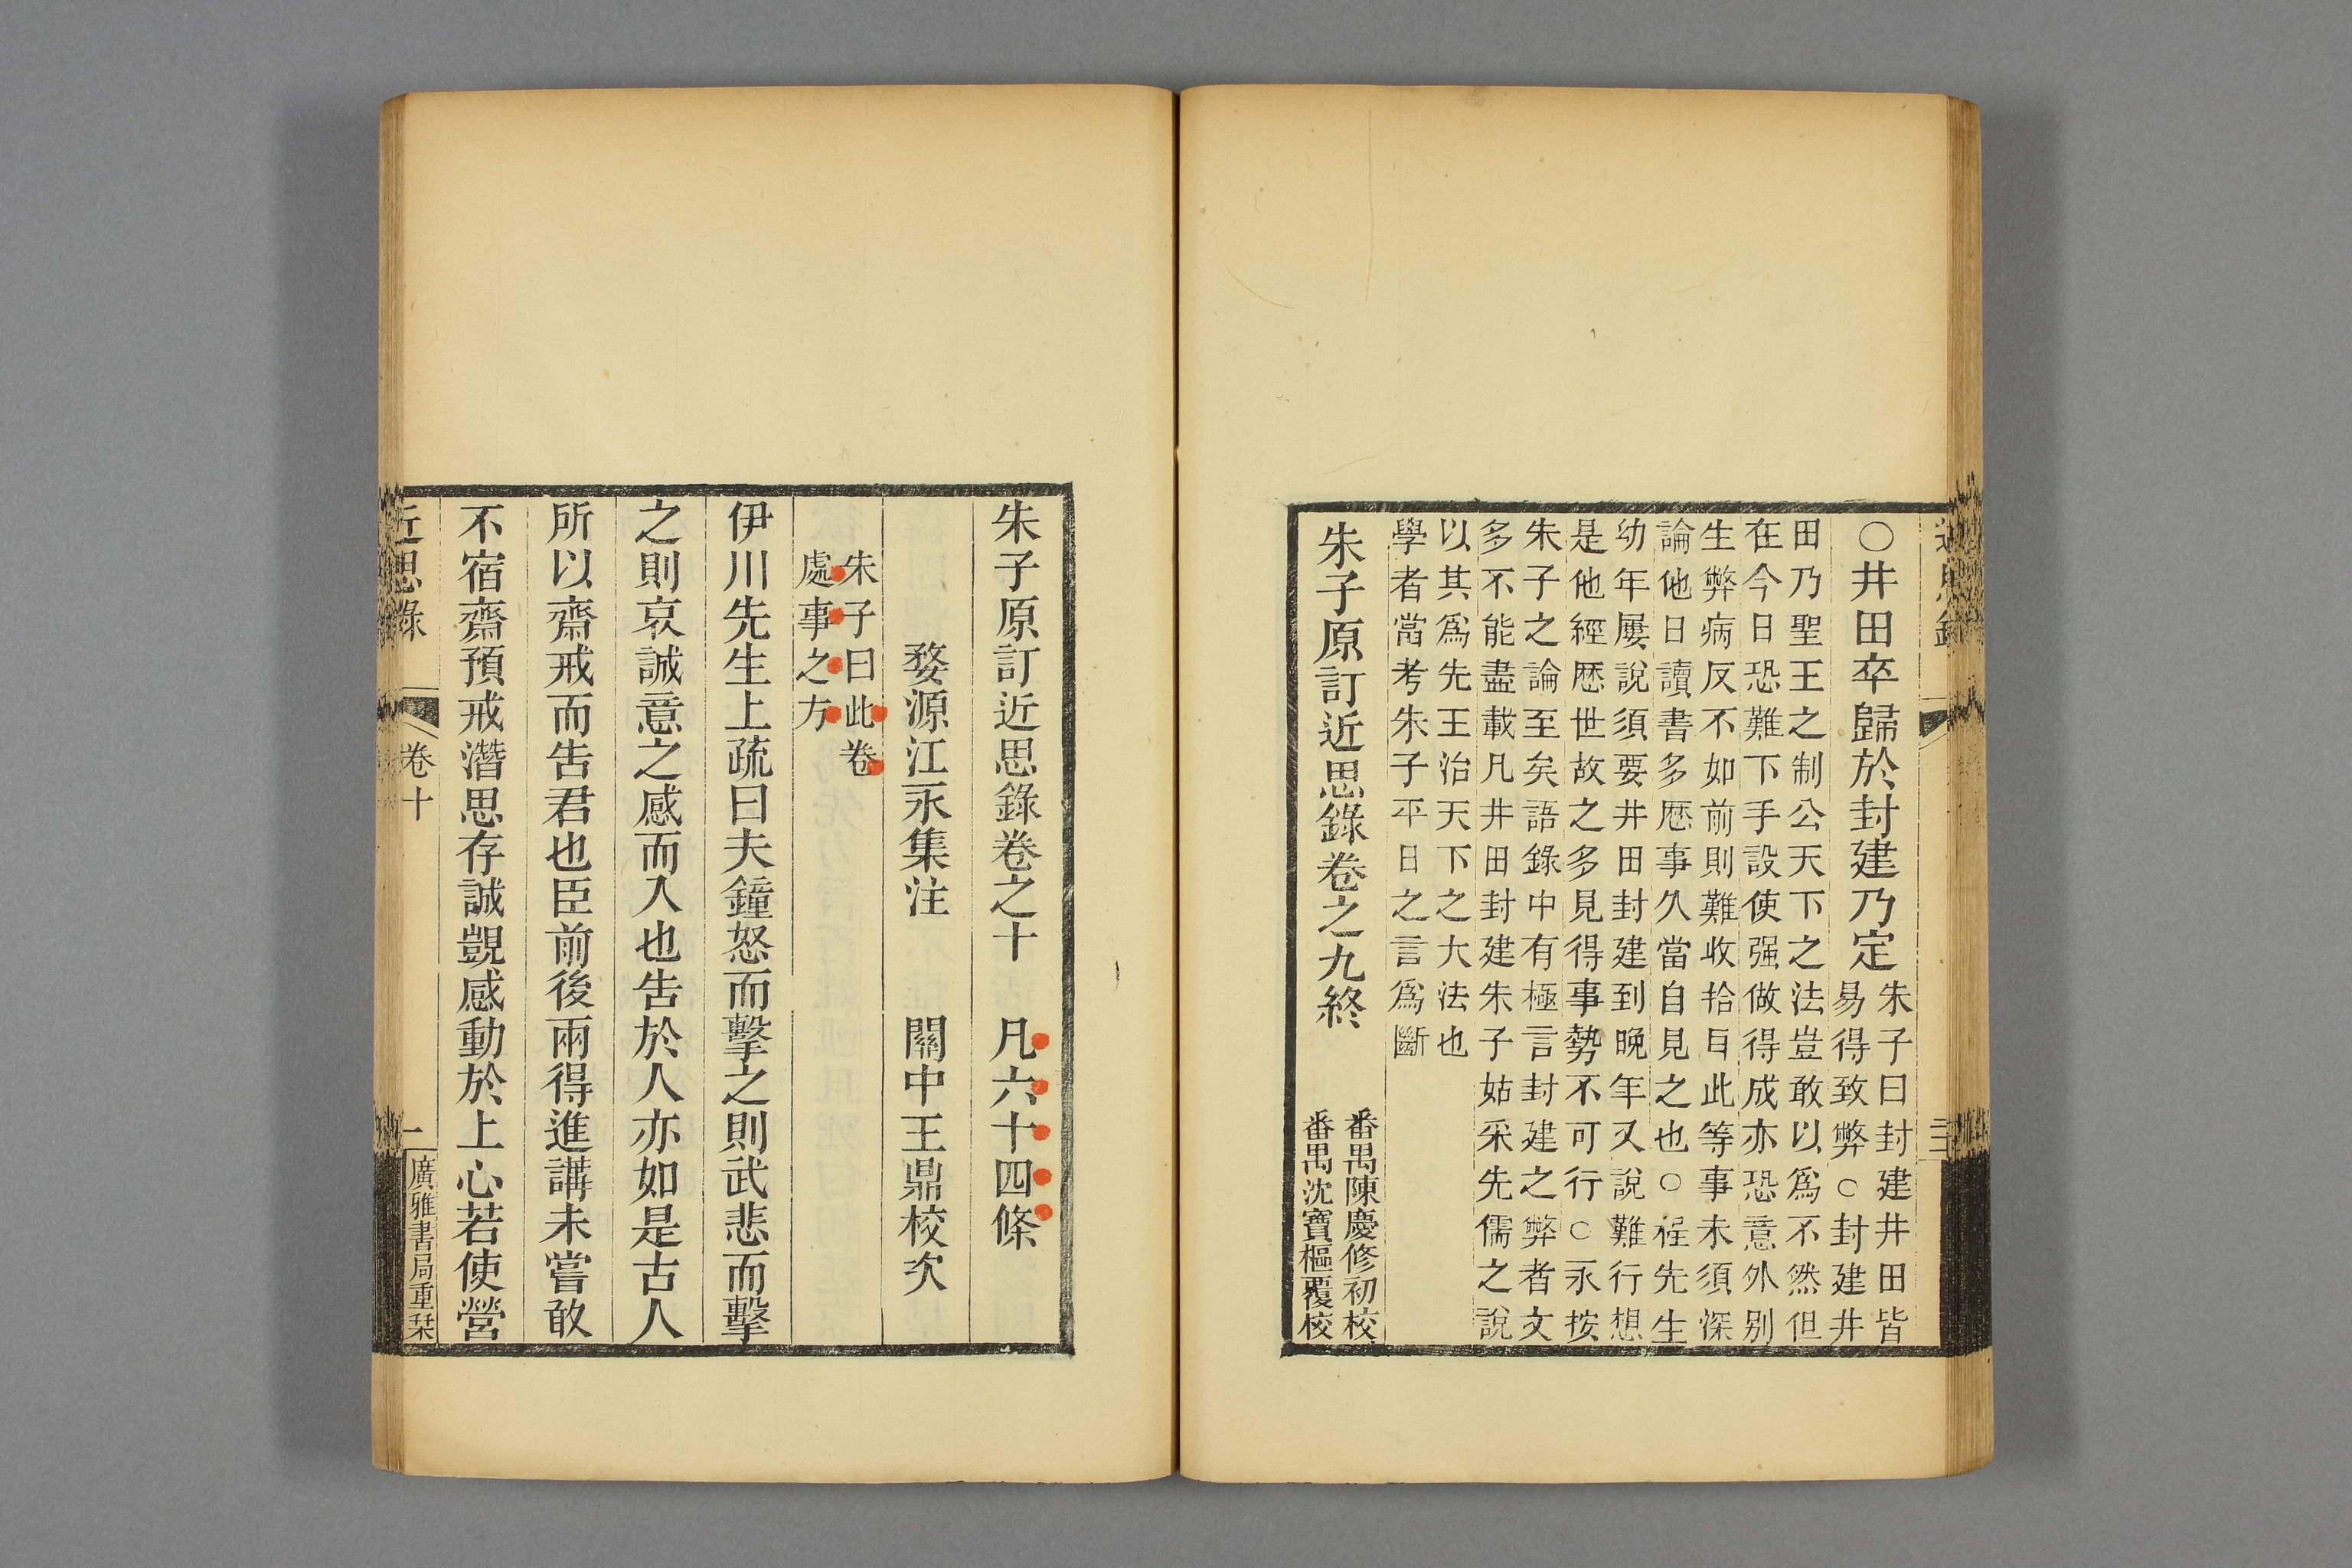 ○井田卒歸於封建乃定
朱子曰封建井田皆
易得致弊○封建井
田乃聖王之制公天下之法豈敢以爲不然但
在今日恐難下手設使强做得成亦恐意外别
生弊病反不如前則難收拾耳此等事未須深
論他日讀書多歷事久當自見之也○程先生
幼年屢說須要井田封建到晚年又說難行想
是他經歷世故之多見得事勢不可行○永按
朱子之論至矣語錄中有極言封建之弊者文
多不能盡載凡井田封建朱子姑采先儒之說
以其爲先王治天下之大法也
學者當考朱子平日之言爲斷
朱子原訂近思錄卷之九終
番禺陳慶修初校
番禺沈寶樞覆校
朱子原訂近思錄卷之十 凡六十四條
婺源江永集注 關中王鼎校次
朱子曰此卷
處事之方
伊川先生上疏曰夫鐘怒而擊之則武悲而擊
之則哀誠意之感而入也告於人亦如是古人
所以齋戒而告君也臣前後兩得進講未嘗敢
不宿齋預戒潛思存誠覬感動於上心若使營
近思錄 卷十 一 廣雅書局重栞